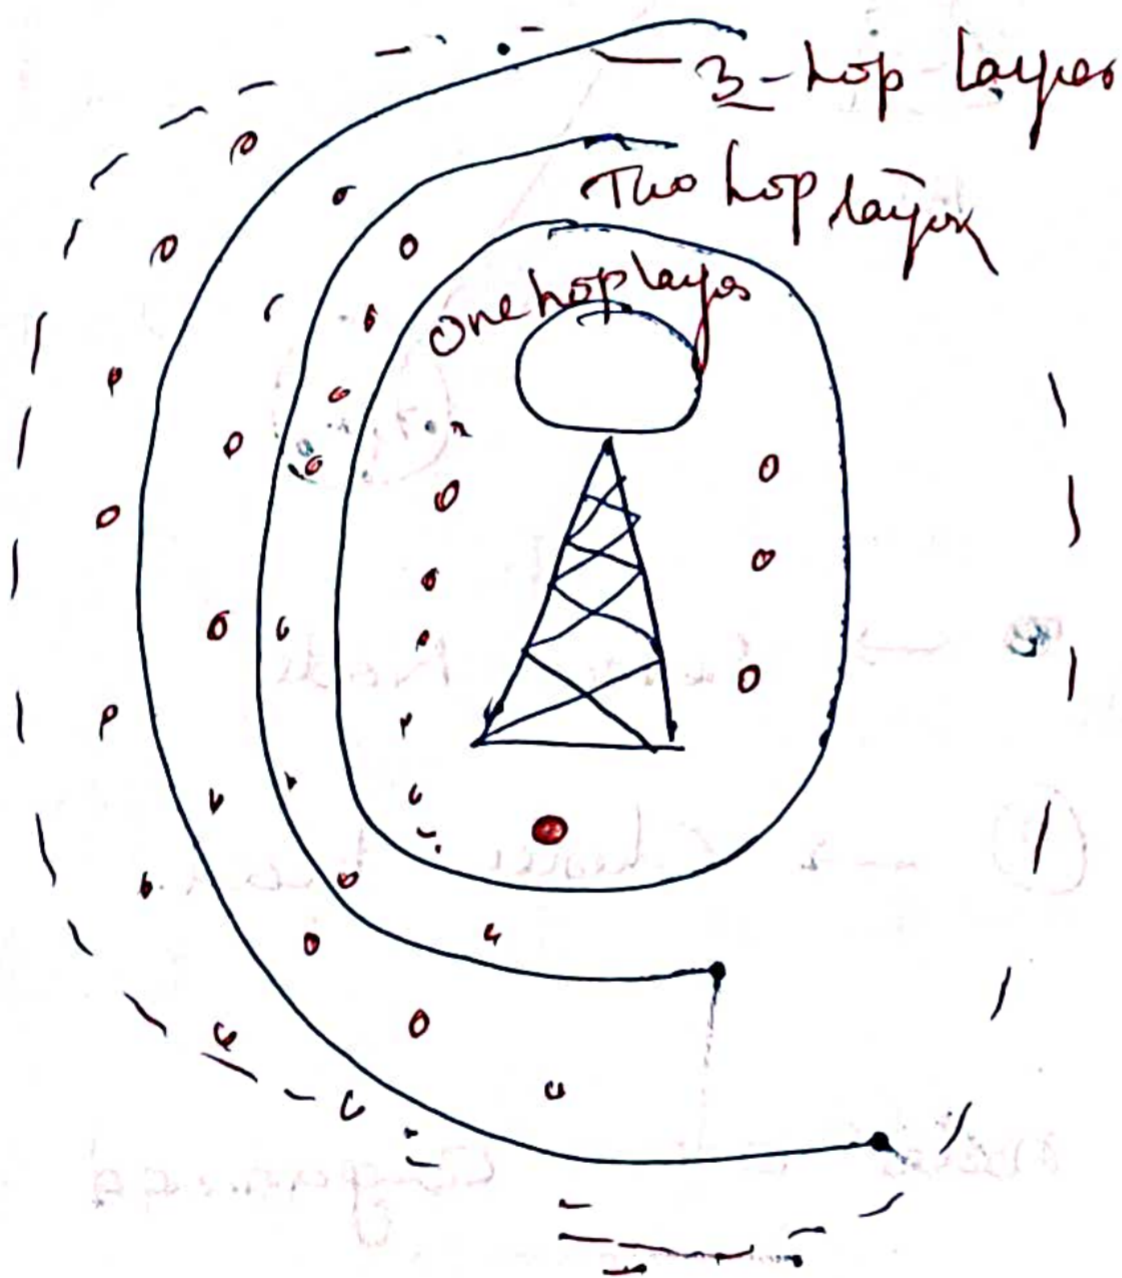 3-hop layer
Two hop layer
One hop layer